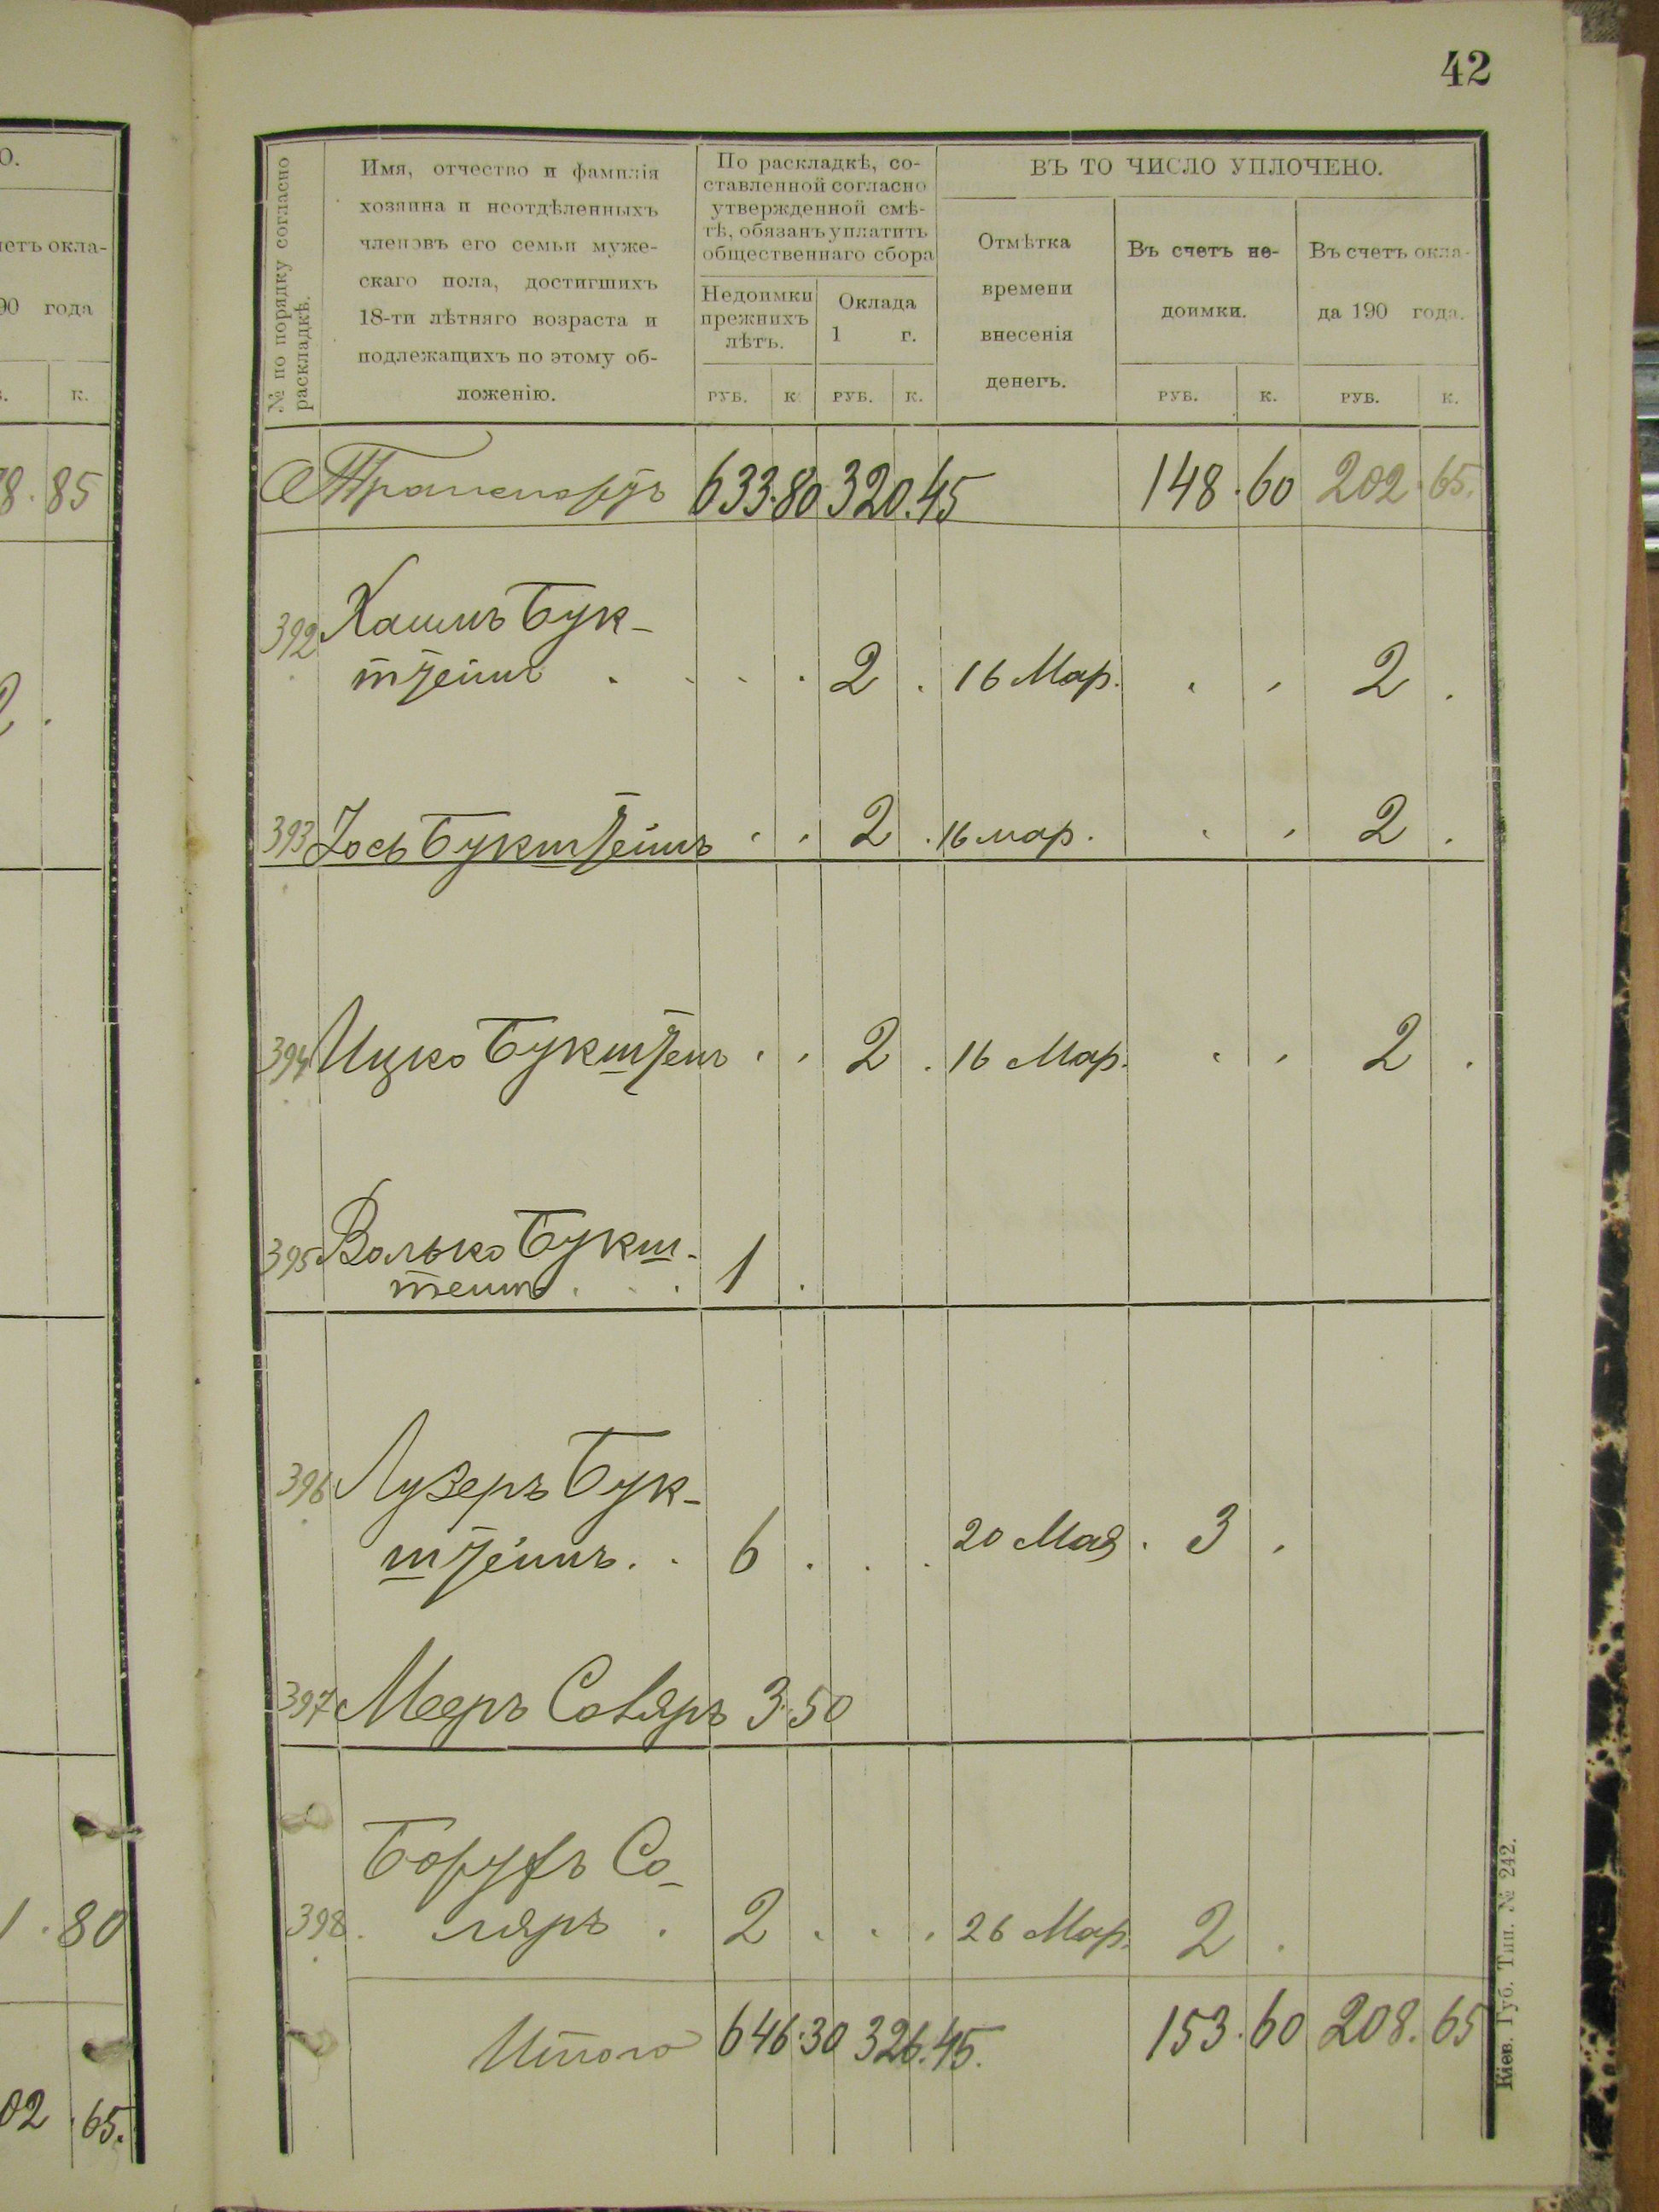 О.
четъ окла-
90 года
к.
8.85
2.
1.80
02.65.
42
№ по порядку согласно
раскладкѣ.
Имя, отчество и фамилія
хозяина и неотдѣленныхъ
членовъ его семьи муже-
скаго пола, достигшихъ
18-ти лѣтняго возраста и
подлежащихъ по этому об-
ложенію.
По раскладкѣ, со-
ставленной согласно
утвержденной смѣ-
тѣ, обязанъ уплатить
общественнаго сбора
Недоимки
прежнихъ
лѣтъ.
Оклада
1 г.
РУБ. К РУБ. К.
ВЪ ТО ЧИСЛО УПЛОЧЕНО.
Отмѣтка
времени
внесенія
денегъ.
Въ счетъ не-
доимки.
РУБ. К.
Въ счетъ окла-
да 190 года.
РУБ. К.
Транспортъ 633.80 320.45 148.60 202.65.
392 Хаимъ Бук-
штейнъ . . . . 2 . 16 Мар. . . 2 .
393 Іось Букштейнъ . . 2 . 16 мар. . . 2 .
394 Ицко Букштен . . 2 . 16 Мар. . . 2 .
395 Волько Букш-
тейнъ . . . 1 .
396 Лузеръ Бук-
штейнъ. . 6 . . . 20 Мая . 3 .
397 Мееръ Соляръ 3.50
Борухъ Со-
398. ляръ . 2 . . . 26 Мар. 2 .
Итого 646.30 326.45. 153.60 208.65
Кіев. Губ. Тип. № 242.